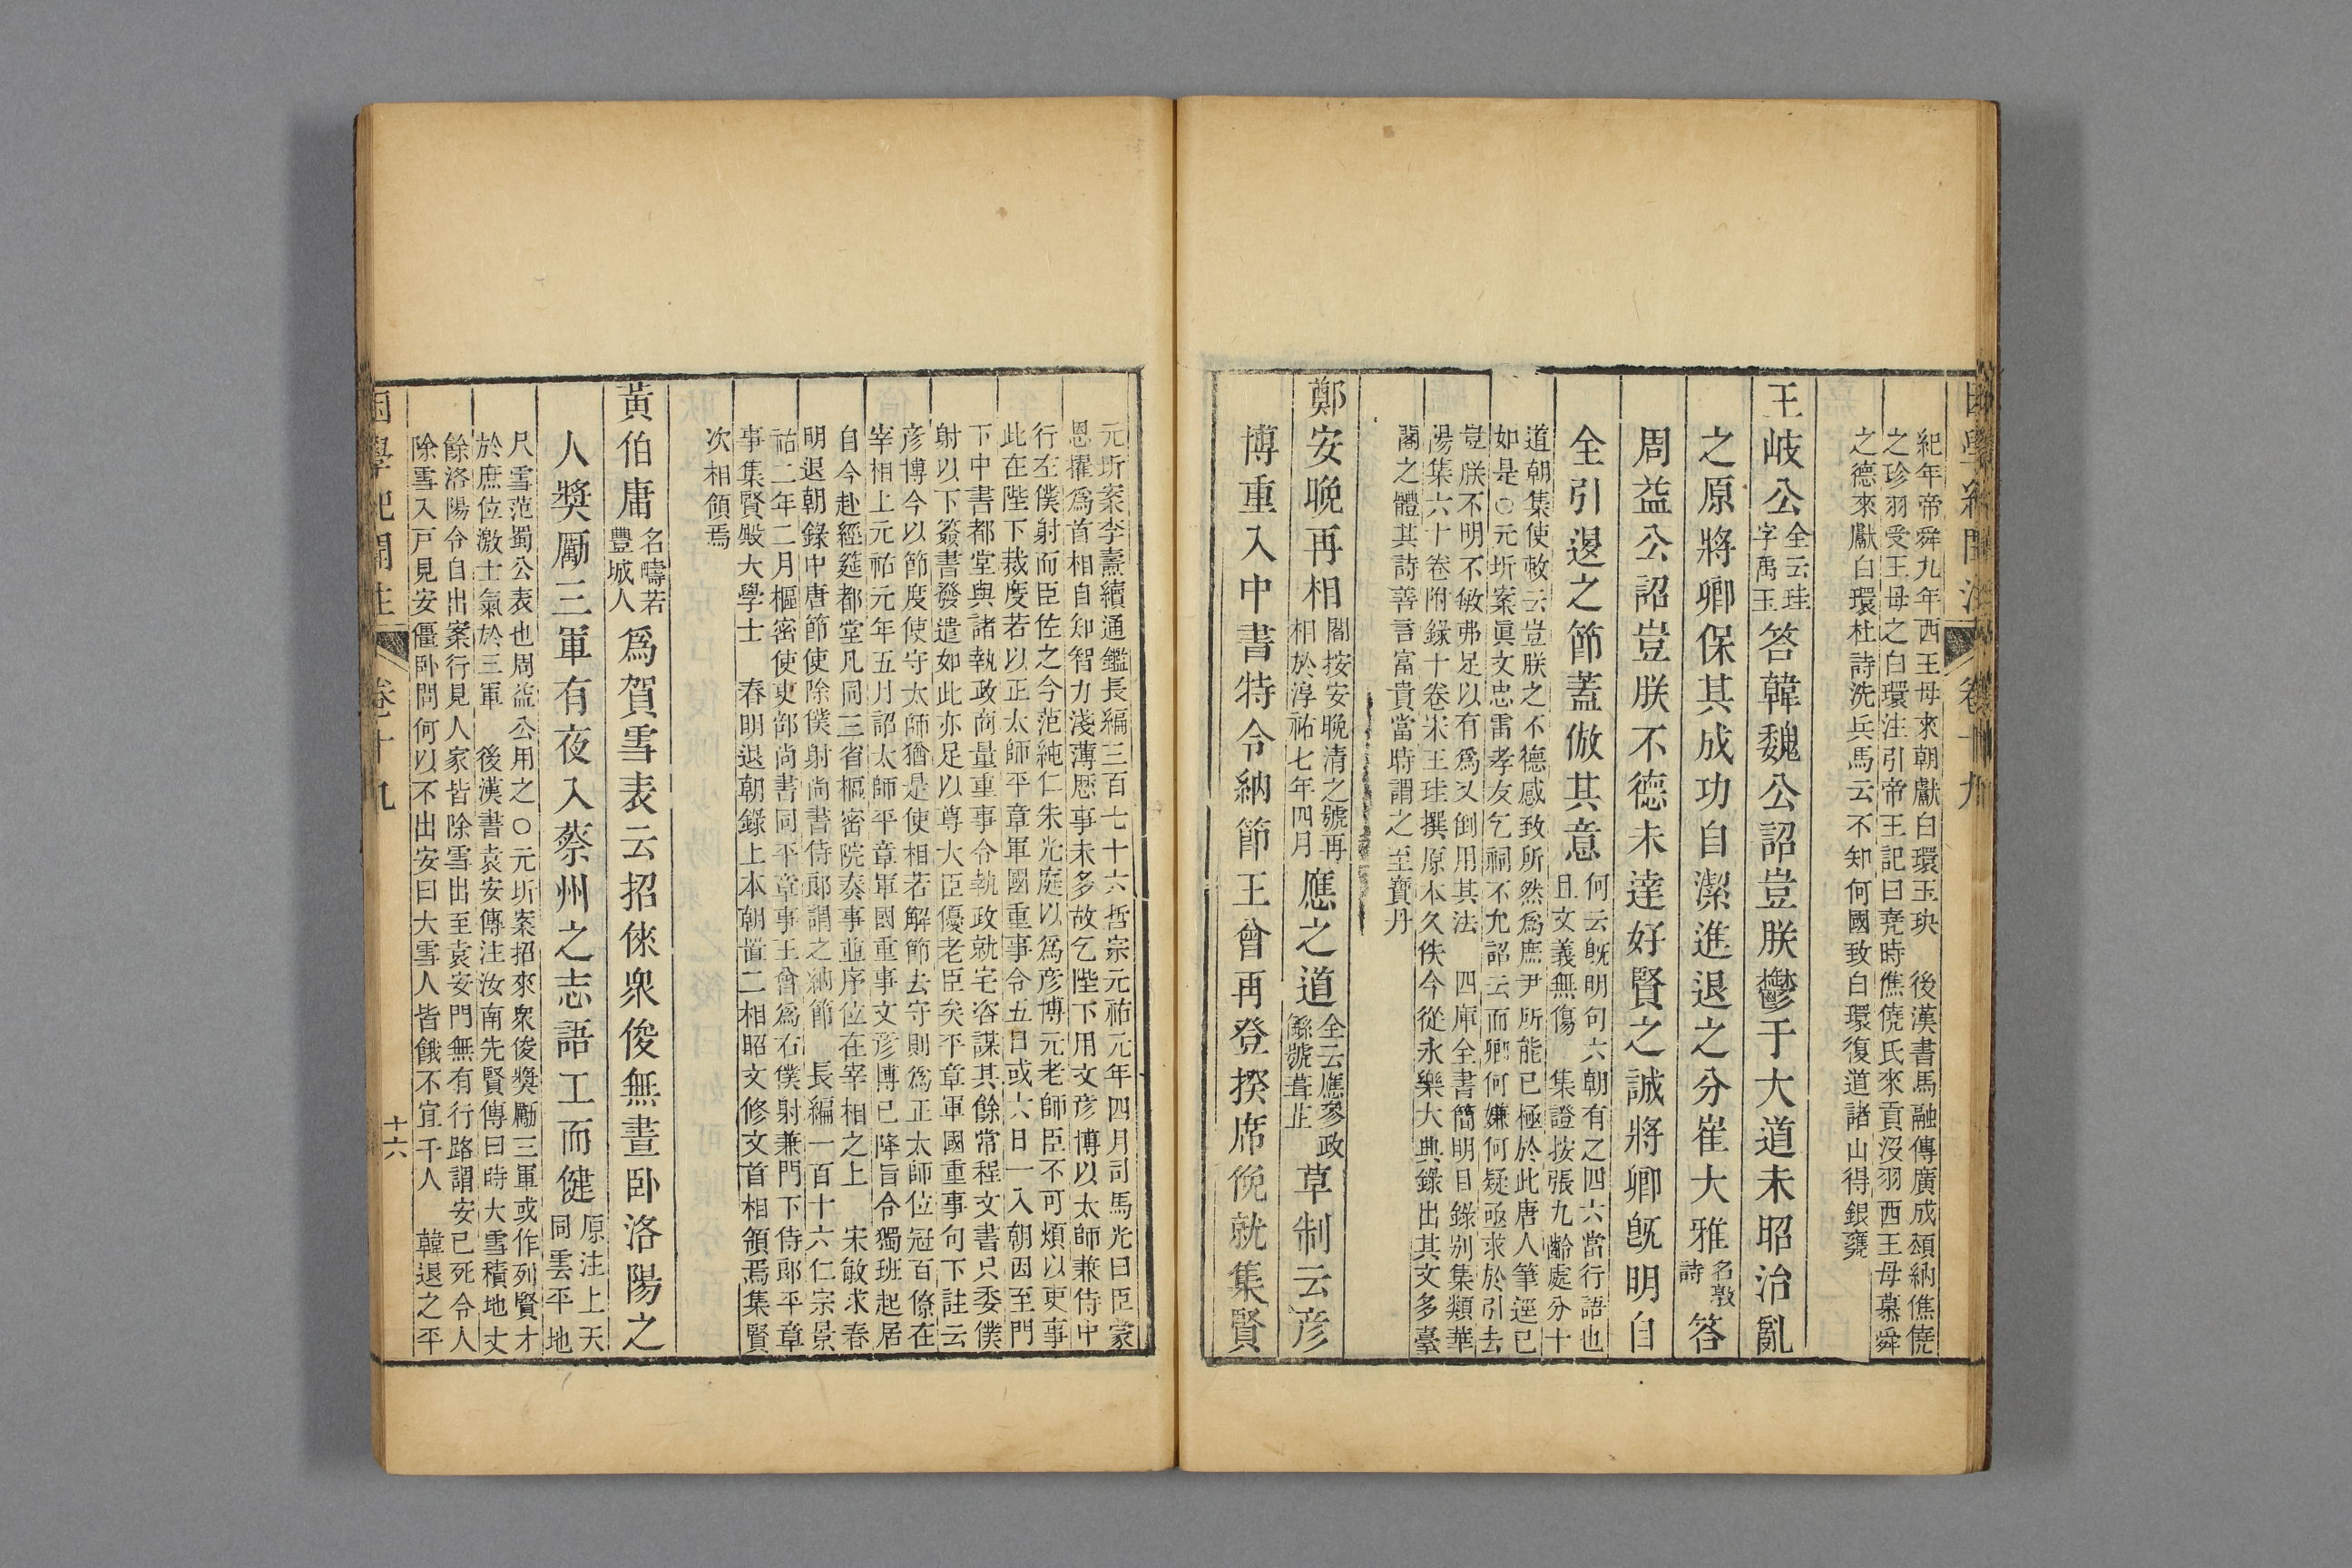 紀年帝舜九年西王母來朝獻白環玉玦　後漢書馬融傳廣成頌納僬僥
之珍羽受王母之白環注引帝王記曰堯時僬僥氏來貢沒羽西王母慕舜
之德來獻白環杜詩洗兵馬云不知何國致白環復道諸山得銀甕
王岐公全云珪字禹玉答韓魏公詔豈朕鬱于大道未昭治亂
之原將卿保其成功自潔進退之分崔大雅名敦詩答
周益公詔豈朕不德未達好賢之誠將卿旣明自
全引退之節蓋倣其意何云旣明句六朝有之四六當行語也且文義無傷　集證按張九齡處分十
道朝集使敕云豈朕之不德感致所然爲庶尹所能已極於此唐人筆逕已
如是○元圻案眞文忠雷孝友乞祠不允詔云而卿何嫌何疑亟求於引去
豈朕不明不敏弗足以有爲又倒用其法　四庫全書簡明目錄别集類華
陽集六十卷附錄十卷宋王珪撰原本久佚今從永樂大典錄出其文多臺
閣之體其詩善言富貴當時謂之至寶丹
鄭安晚再相閻按安晚清之號再相於淳祐七年四月應之道全云應參政㒡號葺芷草制云彦
博重入中書特令納節王曾再登揆席俛就集賢
元圻案李燾續通鑑長編三百七十六哲宗元祐元年四月司馬光曰臣蒙
恩擢爲首相自知智力淺薄歷事未多故乞陛下用文彦博以太師兼侍中
行左僕射而臣佐之今范純仁朱光庭以爲彦博元老師臣不可煩以吏事
此在陛下裁度若以正太師平章軍國重事令五日或六日一入朝因至門
下中書都堂與諸執政商量重事令執政就宅咨謀其餘常程文書只委僕
射以下簽書發遣如此亦足以尊大臣優老臣矣平章軍國重事句下註云
彦博今以節度使守太師猶是使相若解節去守則爲正太師位冠百僚在
宰相上元祐元年五月詔太師平章軍國重事文彦博已降旨令獨班起居
自今赴經筵都堂凡同三省樞密院奏事並序位在宰相之上　宋敏求春
明退朝錄中唐節使除僕射尚書侍郎謂之納節　長編一百十六仁宗景
祐二年二月樞密使吏部尚書同平章事王曾爲右僕射兼門下侍郎平章
事集賢殿大學士　春明退朝錄上本朝置二相昭文修文首相領焉集賢
次相領焉
黃伯庸名疇若豐城人爲賀雪表云招徠衆俊無晝卧洛陽之
人奬勵三軍有夜入蔡州之志語工而健原注上天同雲平地
尺雪范蜀公表也周益公用之○元圻案招來衆俊奬勵三軍或作列賢才
於庶位激士氣於三軍　後漢書袁安傳注汝南先賢傳曰時大雪積地丈
餘洛陽令自出案行見人家皆除雪出至袁安門無有行路謂安已死令人
除雪入戸見安僵卧問何以不出安曰大雪人皆餓不宜干人　韓退之平
困學紀聞注　卷十九　十六